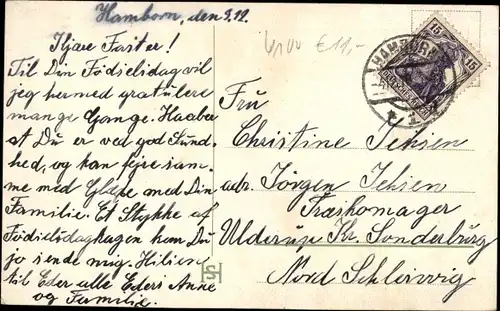 Hamborn, den 3.12.
Kjære Faster!
Til Din Födselsdag vil
jeg hermed gratulere
mange Gange. Haaber
at Du er ved god Sund-
hed, og kan fejre sam-
me med Glæde med Din
Familie. Et Stykke af
Födselsdagkagen kan Du
jo sende mig. Hilsen
til Eder alle Eders Anne
og Familie.
4100 €11,-
HAMBORN
15 15
Fru
Christine Jepsen
adr. Jörgen Jepsen
Træskomager
Ulderup Kr. Sonderburg
Nord Schleswig